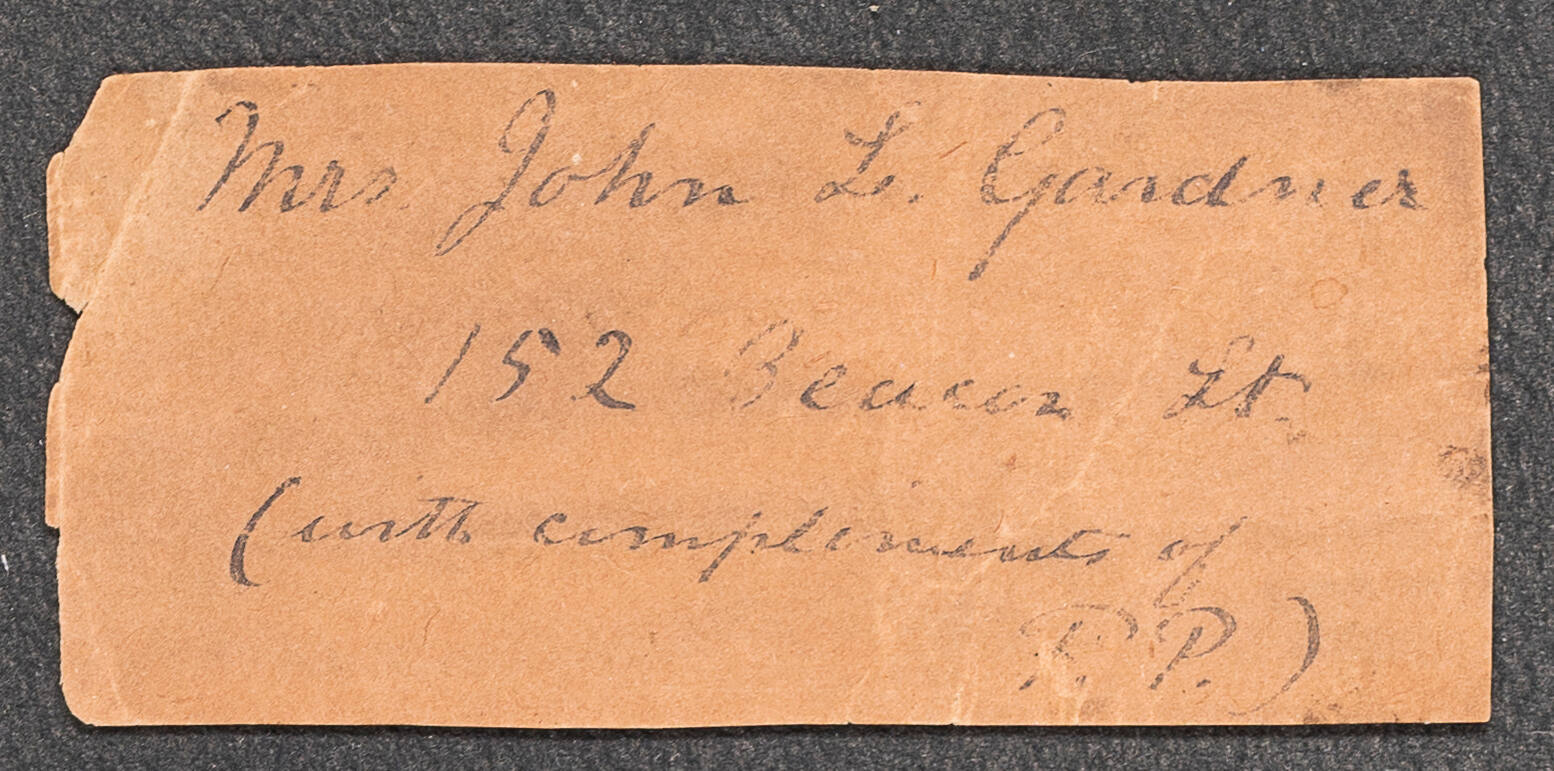 Mrs. John L. Gardner
152 Beacon St.
(with compliments of
P. P.)